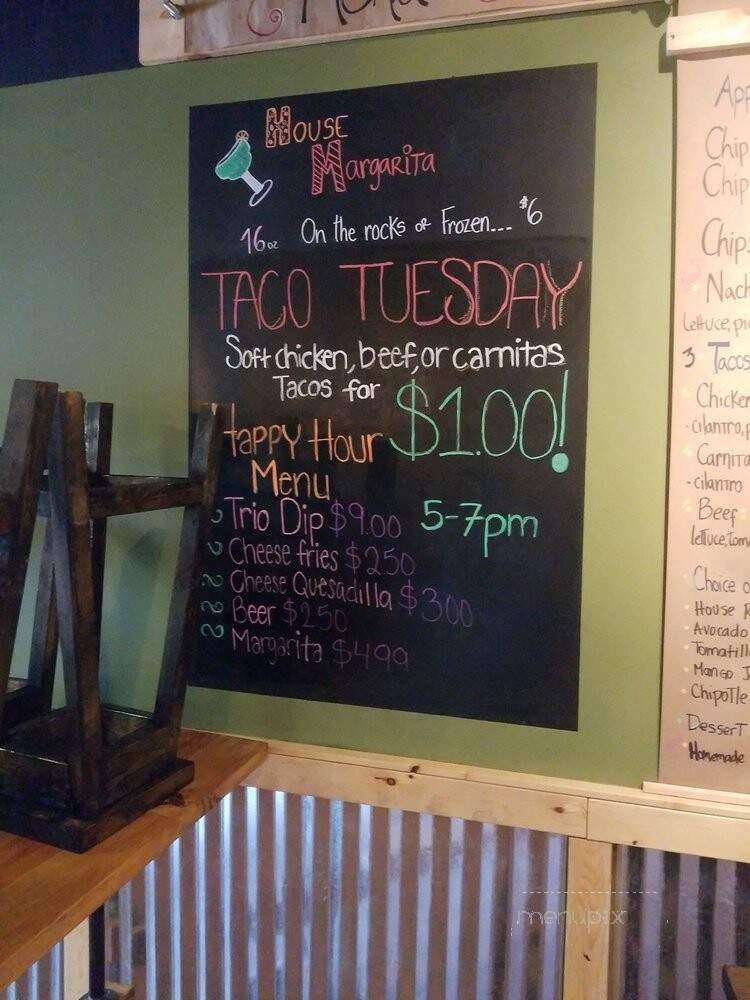 House
Margarita
16oz On the rocks or Frozen... $6
TACO TUESDAY
Soft chicken, beef, or carnitas
Tacos for $1.00!
Happy Hour
Menu
5-7pm
Trio Dip $9.00
Cheese fries $250
Cheese Quesadilla $300
Beer $250
Margarita $499
App
Chip
Chip
Chips
Nach
Lettuce, pi
3 Tacos
Chicken
-cilantro, p
Carnita
-cilantro
Beef
lettuce, tom
Choice o
House
Avocado
Tomatill
Mango
Chipotle
Dessert
Homemade
menupix